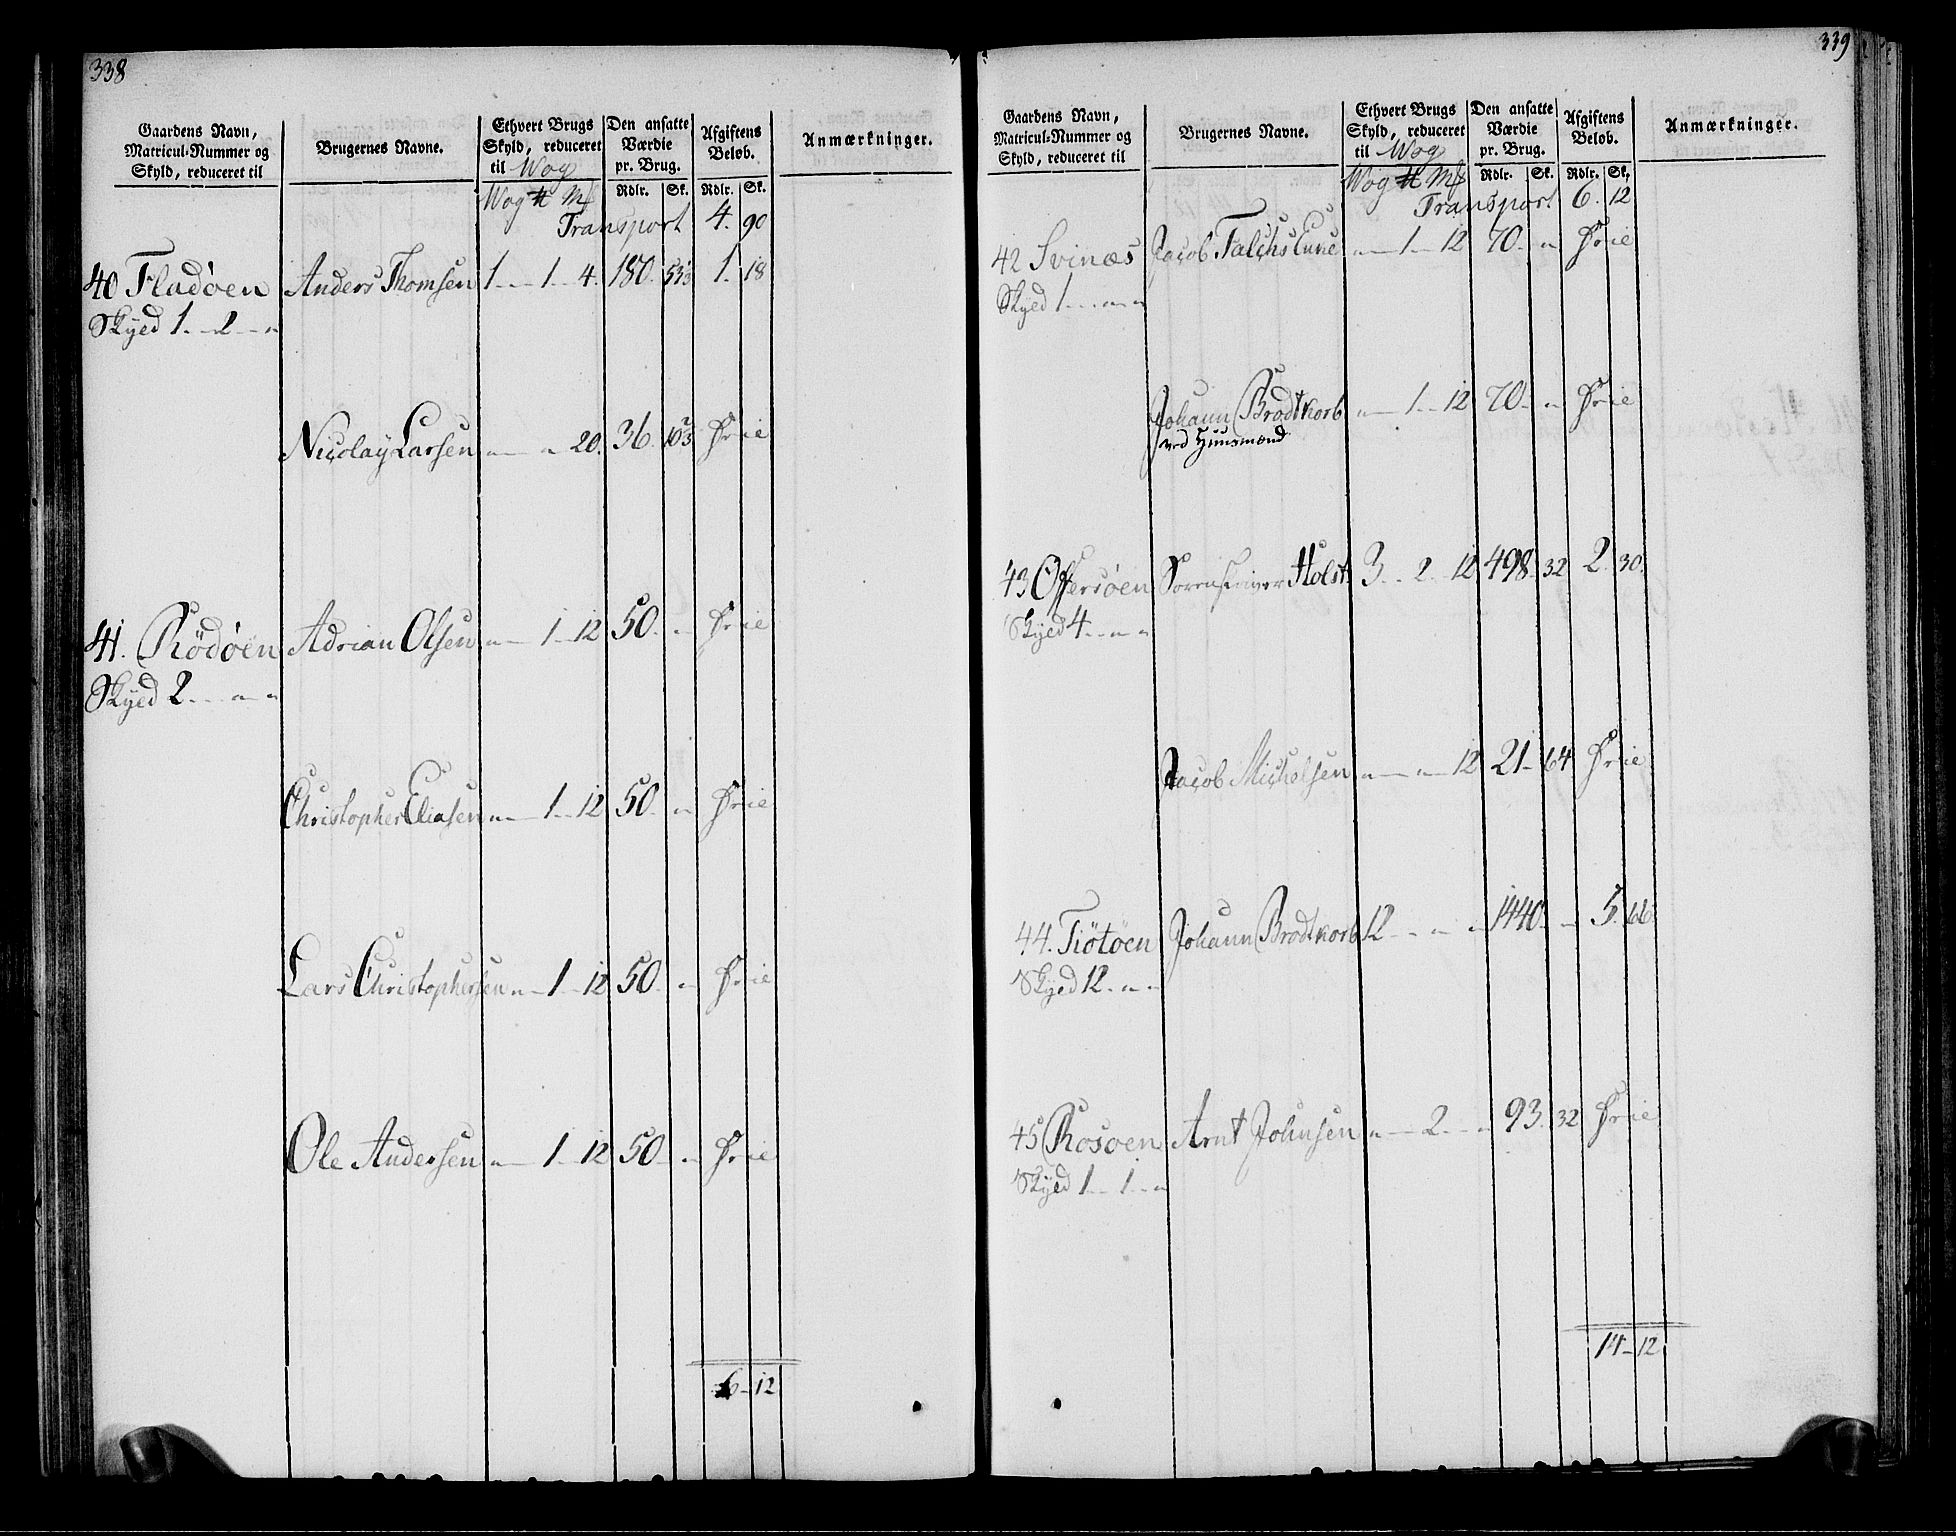 338
Gaardens Navn, Matricul-Nummer og Skyld, reduceret til
Brugernes Navne.
Ethvert Brugs Skyld, reduceret til Wog
Den ansatte Værdie pr. Brug.
Afgiftens Beløb.
Anmærkninger.
Wog ℔ Mk Rdlr. Sk. Rdlr. Sk.
Transport 4. 90
40 Fladøen Anders Thomsen 1 - - 1 - 4. 180. 53⅓ 1. 18
Skyed 1. - 2 - - "
Nicolay Larsen " - " 20. 36. 10⅔ Frie
41. Rødøen Adrian Olsen " - 1 - 12 50. " Frie
Skyed 2 - - " - "
Christopher Eliasen " - 1 - 12 50. " Frie
Lars Christophersen " - 1 - 12 50. " Frie
Ole Andersen " - 1 - 12 50 - " Frie
6 - 12
339
Gaardens Navn, Matricul-Nummer og Skyld, reduceret til
Brugernes Navne.
Ethvert Brugs Skyld, reduceret til Wog
Den ansatte Værdie pr. Brug.
Afgiftens Beløb.
Anmærkninger.
Wog ℔ Mk Rdlr. Sk. Rdlr. Sk.
Transport 6. 12
42 Svinæs Jacob Falchs Enne " - 1 - 12 70. " Frie
Skyed 1 - - " - "
Johann Brodtkorb " - 1 - 12 70 - " Frie
ved Huusmænd
43 Offersøen Sorenskriver Holst 3 - 2 - 12 498. 32 2. 30.
Skyed 4 - - " - "
Jacob Michelsen " - " - 12 21 - 64 Frie
44. Tiötöen Johann Brodtkorb 12 - - " - " 1440. - 5. 66
Skyed 12. - " - "
45 Rosöen Arnt Johnsen " - 2 - - " 93. 32 Frie
Skyed 1 - 1 - "
14 - 12